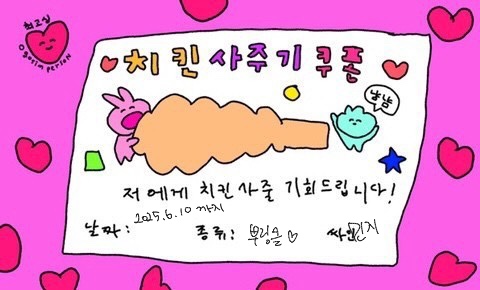 최고심
@gosimperson
치킨 사주기 쿠폰
냠냠
저에게 치킨 사줄 기회드립니다!
날짜: 2025.6.10 까지 종류: 뿌링클♡ 싸인: 민지